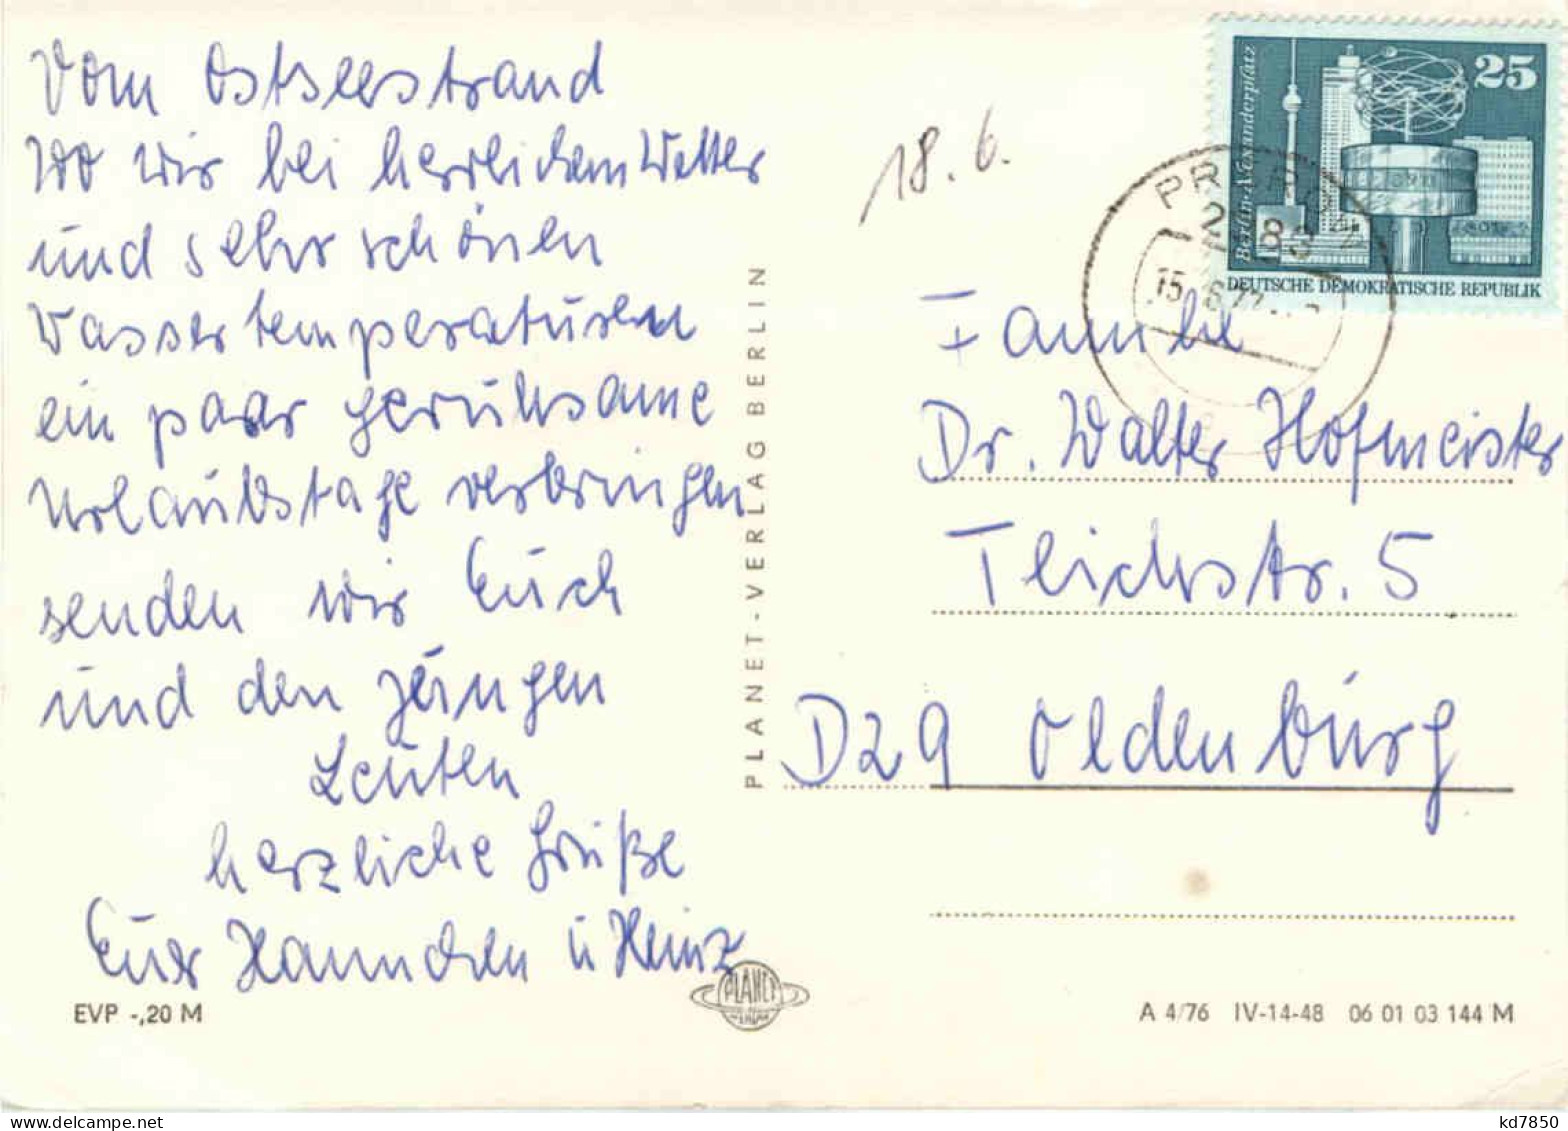 Vom Ostseestrand
wo wir bei herrlichem Wetter
und sehr schönen
Wassertemperaturen
ein paar geruhsame
Urlaubstage verbringen
senden wir Euch
und den jungen
Leuten
herzliche Grüße
Euer Hannchen u Heinz
EVP -,20 M
PLANET-VERLAG BERLIN
PLANET
VERLAG
18. 6.
25
Berlin-Alexanderplatz
DEUTSCHE DEMOKRATISCHE REPUBLIK
Familie
Dr. Walter Hofmeister
Teichstr. 5
D29 Oldenburg
A 4/76 IV-14-48 06 01 03 144 M
kd7850